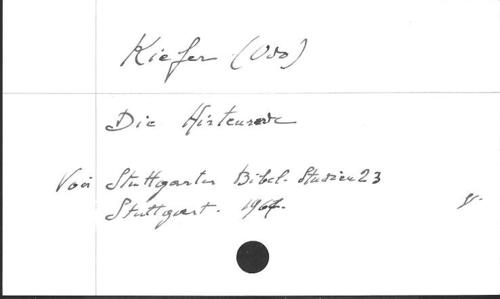 Kiefer (Odo)
Die Hirtenrede
Voir Stuttgarter Bibel. Studien 23
Stuttgart. 1967.